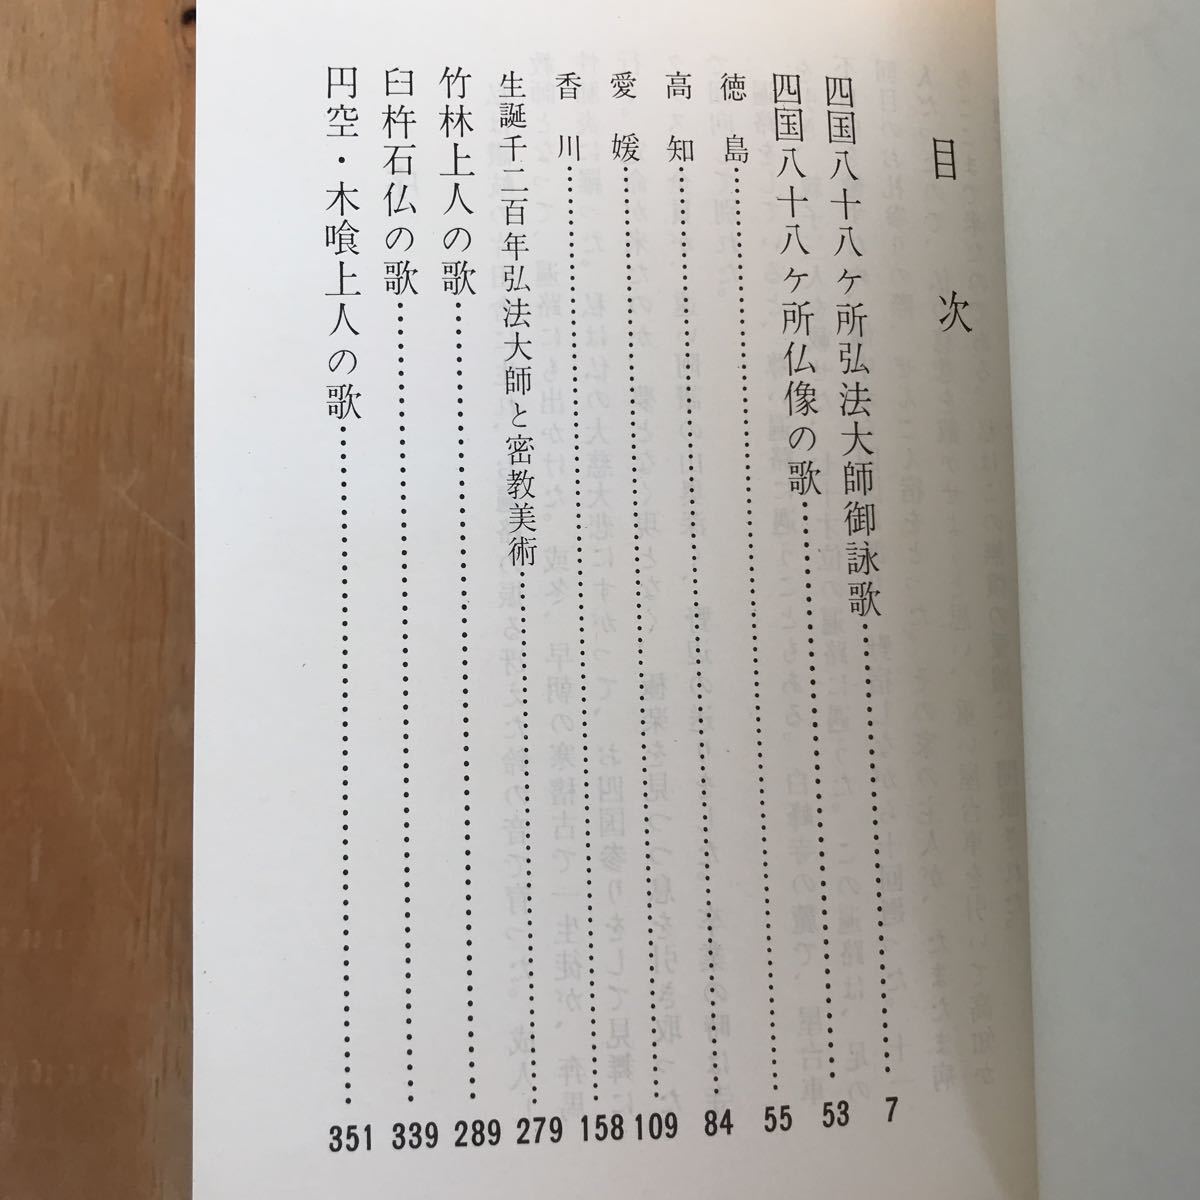 目次
四国八十八ケ所弘法大師御詠歌……7
四国八十八ケ所仏像の歌……53
徳島……55
高知……84
愛媛……109
香川……158
生誕千二百年弘法大師と密教美術……279
竹林上人の歌……289
臼杵石仏の歌……339
円空・木喰上人の歌……351